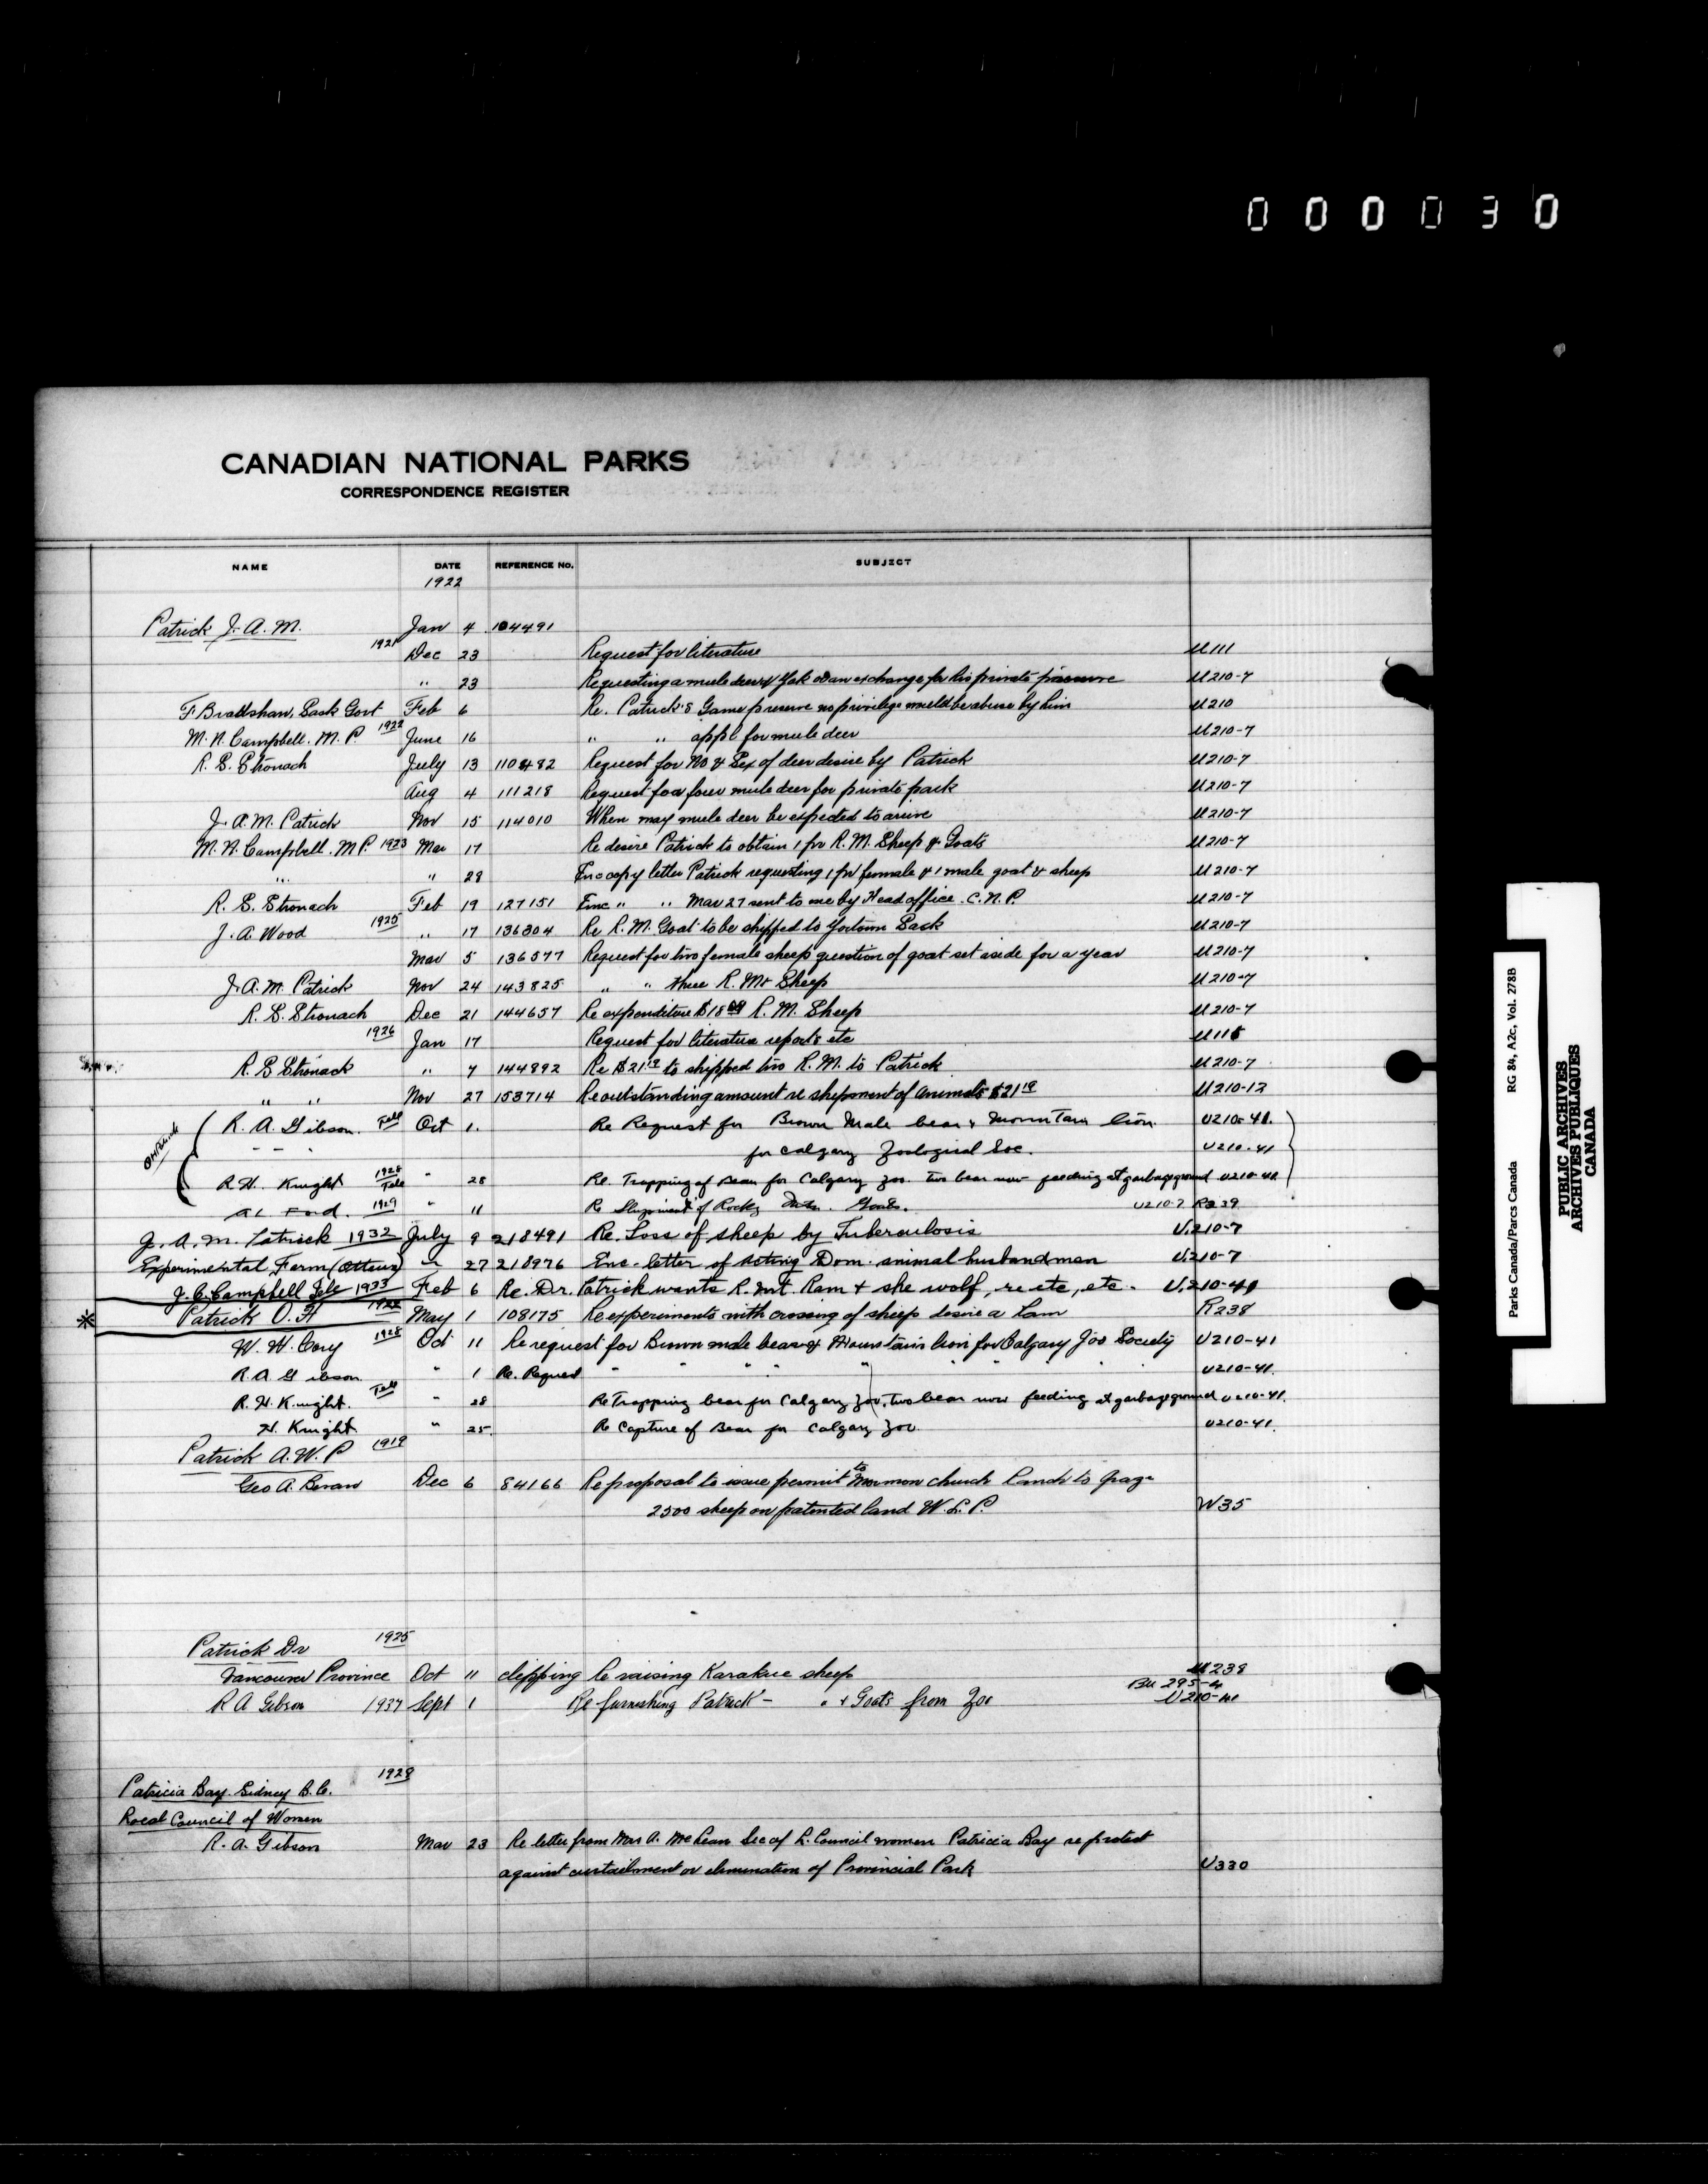 0 0 0 0 3 0
CANADIAN NATIONAL PARKS
CORRESPONDENCE REGISTER
NAME DATE REFERENCE No. SUBJECT
1922
Patrick J. A. M. Jan 4 104491
1921 Dec 23 Request for literature U111
" 23 Requesting a mule deer & Yak on an exchange for his private preserve U210-7
F Bradshaw, Sask Govt Feb 6 Re. Patrick's Game preserve no privilege would be abuse by him U210
M. N. Campbell. M. P. 1922 June 16 " " appl for mule deer U210-7
R. S. Stronach July 13 110482 Request for No & Sex of deer desire by Patrick U210-7
Aug 4 111218 Request for four mule deer for private park U210-7
J. A. M. Patrick Nov 15 114010 When may mule deer be expected to arrive U210-7
M. N. Campbell. M P. 1923 Mar 17 Re desire Patrick to obtain 1 pr R. M. Sheep & Goats U210-7
" " 28 Enc copy letter Patrick requesting 1 pr female & 1 male goat & sheep U210-7
R. S. Stronach Feb 19 127151 Enc " " Mar 27 sent to me by Head office. C. N. P. U210-7
J. A. Wood 1925 " 17 136304 Re R. M. Goat to be shipped to Yorktown Sask U210-7
Mar 5 136577 Request for two female sheep question of goat set aside for a year U210-7
J. A. M. Patrick Nov 24 143825 " " three R. Mt Sheep U210-7
R. S. Stronach Dec 21 144657 Re expenditure $18 R. M. Sheep U210-7
1926 Jan 17 Request for literature reports etc U115
R. S Stronack " 7 144892 Re $21.19 to shipped two R. M. to Patrick U210-7
" " Nov 27 153714 Re outstanding amount re shipment of animals $21 19 U210-12
R. A. Gibson. Tele Oct 1. Re Request for Brown Male bear & Mountain lion U210-41.
- - - for Calgary Zoological Soc. U210-41
R. H. Knight 1928 Tele " 28 Re. Trapping of Bear for Calgary Zoo. two bear now feeding at garbage ground U210-41
A. L. Ford. 1929 " 11 Re Shipment of Rocky Mtn. Goats. U210-7 R239
J. A. M. Patrick 1932 July 9 218491 Re. Loss of sheep by Tuberculosis U.210-7
Experimental Farm (Ottawa) " 27 218976 Enc. letter of Acting Dom. animal husbandman U.210-7
J. C. Campbell Tele 1933 Feb 6 Re. Dr. Patrick wants R. Mt. Ram & she wolf, re etc, etc. U.210-41
* Patrick O. H 1922 May 1 108175 Re experiments with crossing of sheep desire a Lam R238
W. W. Cory 1928 Oct 11 Re request for Brown male bear & Mountain lion for Calgary Zoo Society U210-41
R. A Gibson " 1 Re. Request " " " " " " U210-41.
R. H. Knight. Tele " 28 Re Trapping bear for Calgary Zoo, two bear now feeding at garbage ground U210-41.
H. Knight " 25. Re Capture of Bear for Calgary Zoo. U210-41.
Patrick A. W. P 1919
Geo A. Bevan Dec 6 84166 Re proposal to issue permit to Mormon church Lands to graze
2500 sheep on patented land W. L. P. W35
Patrick Dr 1925
Vancouver Province Oct 11 clipping Re raising Karakue sheep U238
Bu 295-4
R A Gibson 1937 Sept 1 Re furnishing Patrick - " & Goats from Zoo U210-41
1928
Patricia Bay. Sidney B. C.
Local Council of Women
R. A. Gibson Mar 23 Re letter from Mrs A. McLean Sec of L. Council women Patricia Bay re protest
against curtailment or elimination of Provincial Park U330
Parks Canada/Parcs Canada RG 84, A2c, Vol. 278B
PUBLIC ARCHIVES
ARCHIVES PUBLIQUES
CANADA